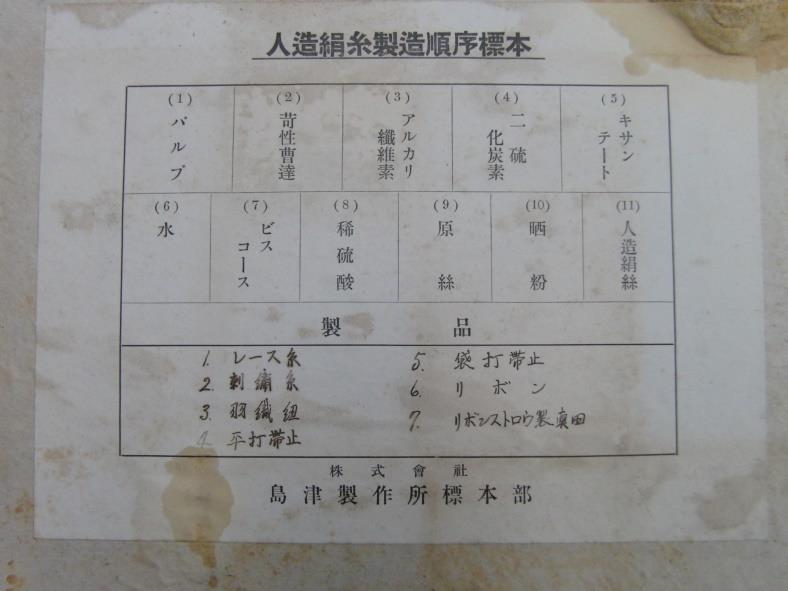 人造絹糸製造順序標本
(1) パルプ
(2) 苛性曹達
(3) アルカリ
纖維素
(4) 二硫
化炭素
(5) キサン
テート
(6) 水
(7) ビス
コース
(8) 稀硫酸
(9) 原絲
(10) 晒粉
(11) 人造絹絲
製品
1. レース糸
2. 刺繍糸
3. 羽織紐
4. 平打帯止
5. 袋打帯止
6. リボン
7. リボンストロウ製眞田
株式會社
島津製作所標本部